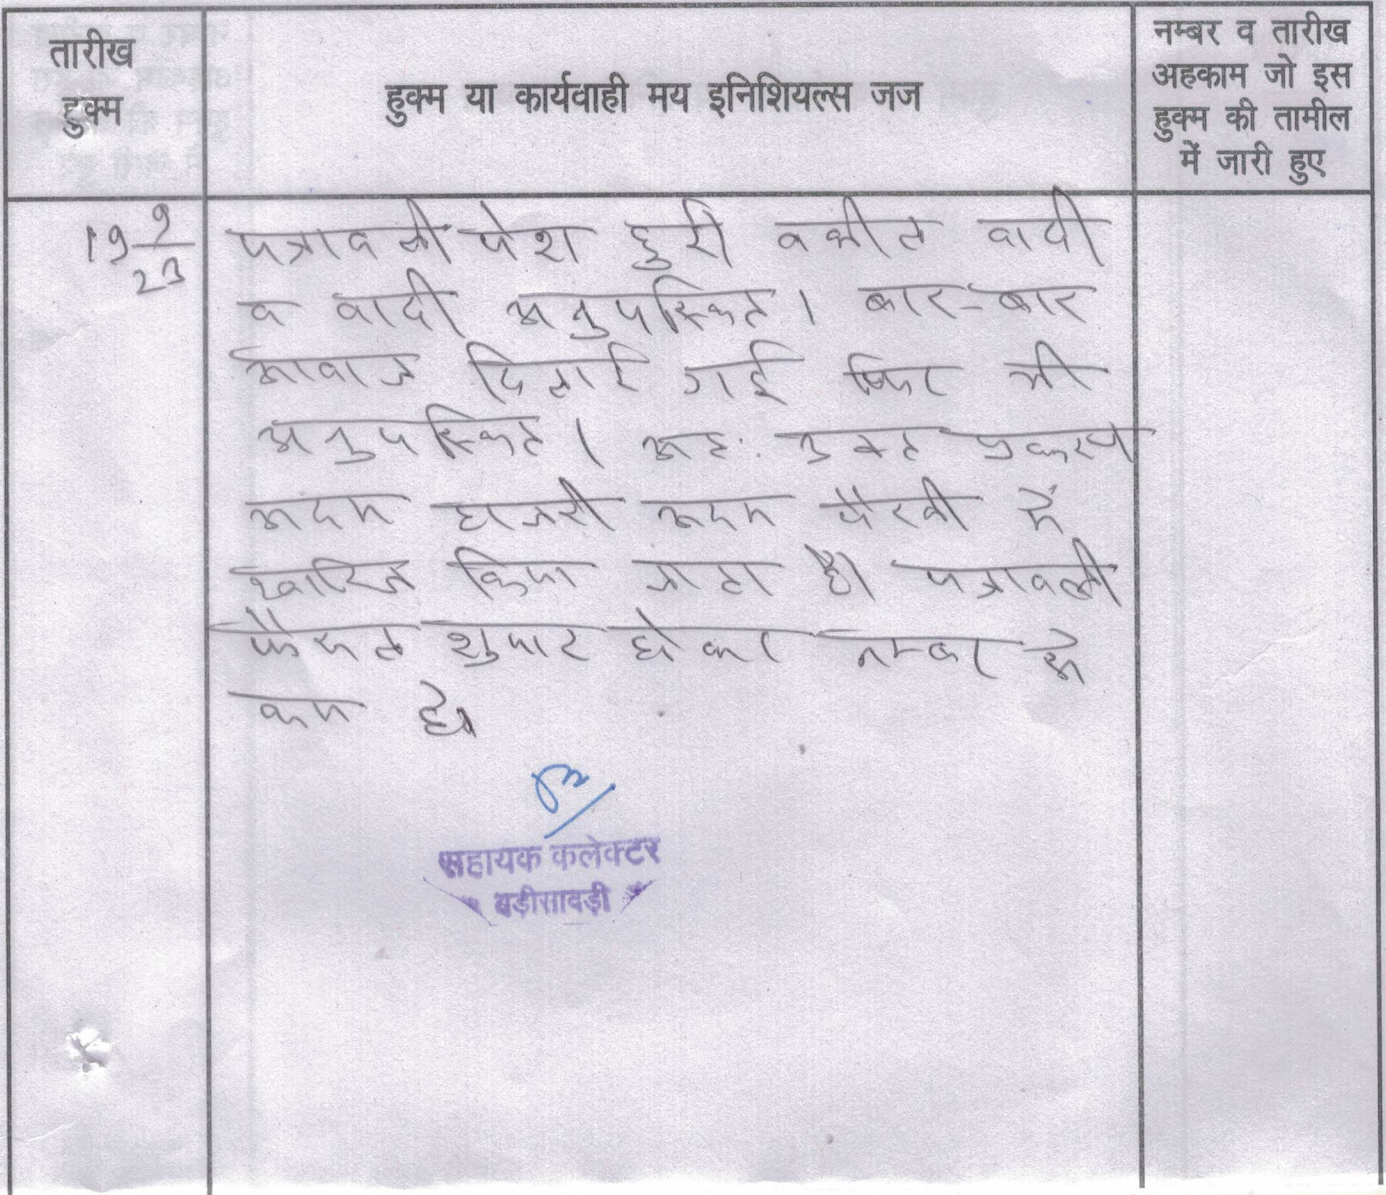 तारीख
हुक्म
हुक्म या कार्यवाही मय इनिशियल्स जज
नम्बर व तारीख
अहकाम जो इस
हुक्म की तामील
में जारी हुए
19 9/23
पत्रावली पेश हुई वकील वादी
व वादी अनुपस्थित। बार-बार
आवाज दिलाई गई फिर भी
अनुपस्थित। अतः उक्त प्रकरण
अदम हाजरी अदम पैरवी में
खारिज किया जाता है। पत्रावली
फैसल शुमार होकर नम्बर से
कम हो।
सहायक कलेक्टर
बड़ीसादड़ी